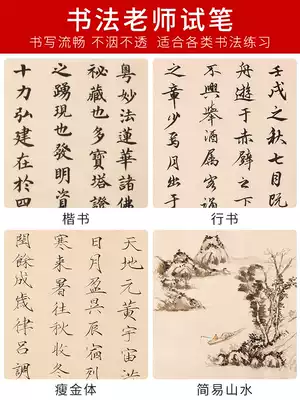 书法老师试笔
书写流畅 不洇不透 适合各类书法练习
粤妙法蓮華諸佛
秘藏也多寶塔證
之踴現也發明資
十力弘建在於四
楷书
壬戌之秋七月既
舟遊于赤壁之下
不興舉酒属客誦
之章少焉月出于
行书
天地元黃宇宙
日月盈昃辰宿列
寒來暑往秋收冬
閏餘成歲律呂調
瘦金体
简易山水